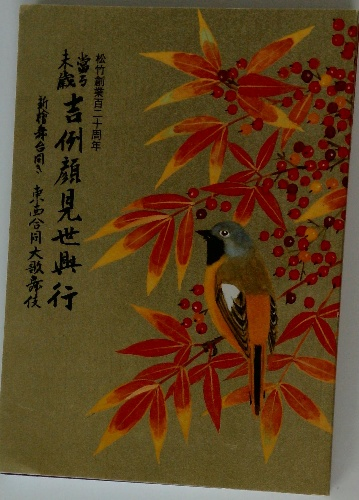 松竹創業百二十周年
當る未歳
吉例顔見世興行
新檜舞台開き
東西合同大歌舞伎